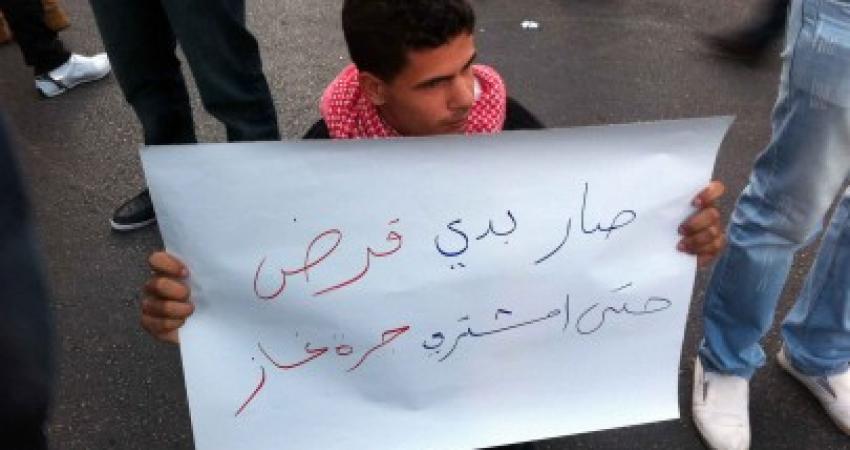 صار بدي قرض
حتى اشتري جرة غاز